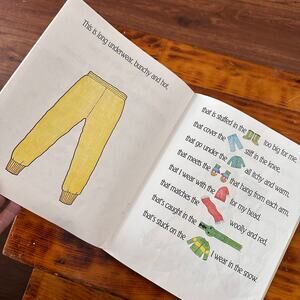 This is long underwear, bunchy and hot,
that is stuffed in the too big for me
that cover the stiff in the knee.
that go under the all itchy and warm.
that meets the that hang from each arm.
that I wear with the for my head.
that matches the woolly and red.
that's caught in the
that's stuck on the I wear in the snow.